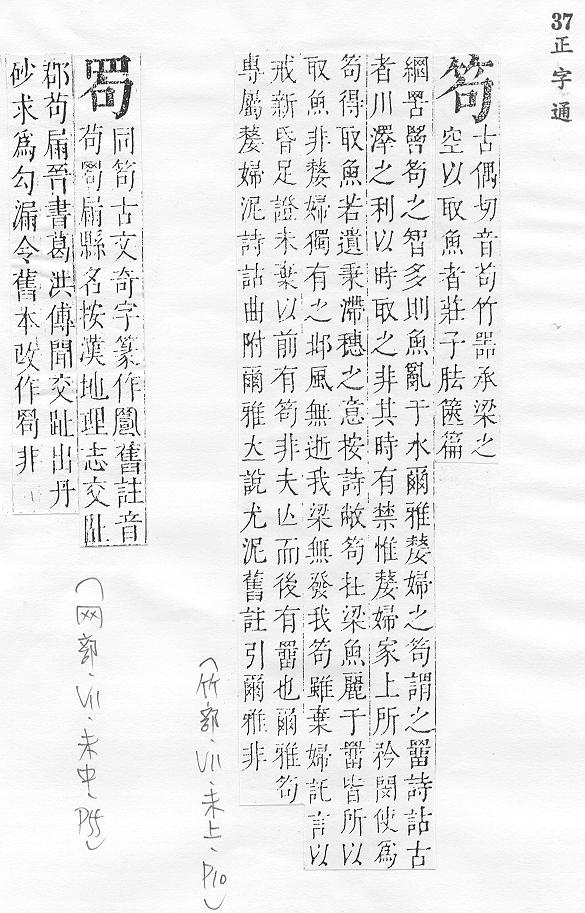 37
正字通
笱
古偶切音苟竹器承梁之
空以取魚者莊子胠篋篇
網罟罾笱之智多則魚亂于水爾雅嫠婦之笱謂之罶詩詁古
者川澤之利以時取之非其時有禁惟嫠婦家上所矜閔使為
笱得取魚若遺秉滯穗之意按詩敝笱在梁魚麗于罶皆所以
取魚非嫠婦獨有之邶風無逝我梁無發我笱雖棄婦託言以
戒新昏足證未棄以前有笱非夫亾而後有罶也爾雅笱
專屬嫠婦泥詩詁曲附爾雅𠀤說尤泥舊註引爾雅非
同笱古文奇字篆作舊註音
苟扃縣名按漢地理志交趾
郡苟扃晉書葛洪傳聞交趾出丹
砂求為勾漏令舊本改作非
(竹部、VII、未上、P10)
(网部、VII、未中、P55)